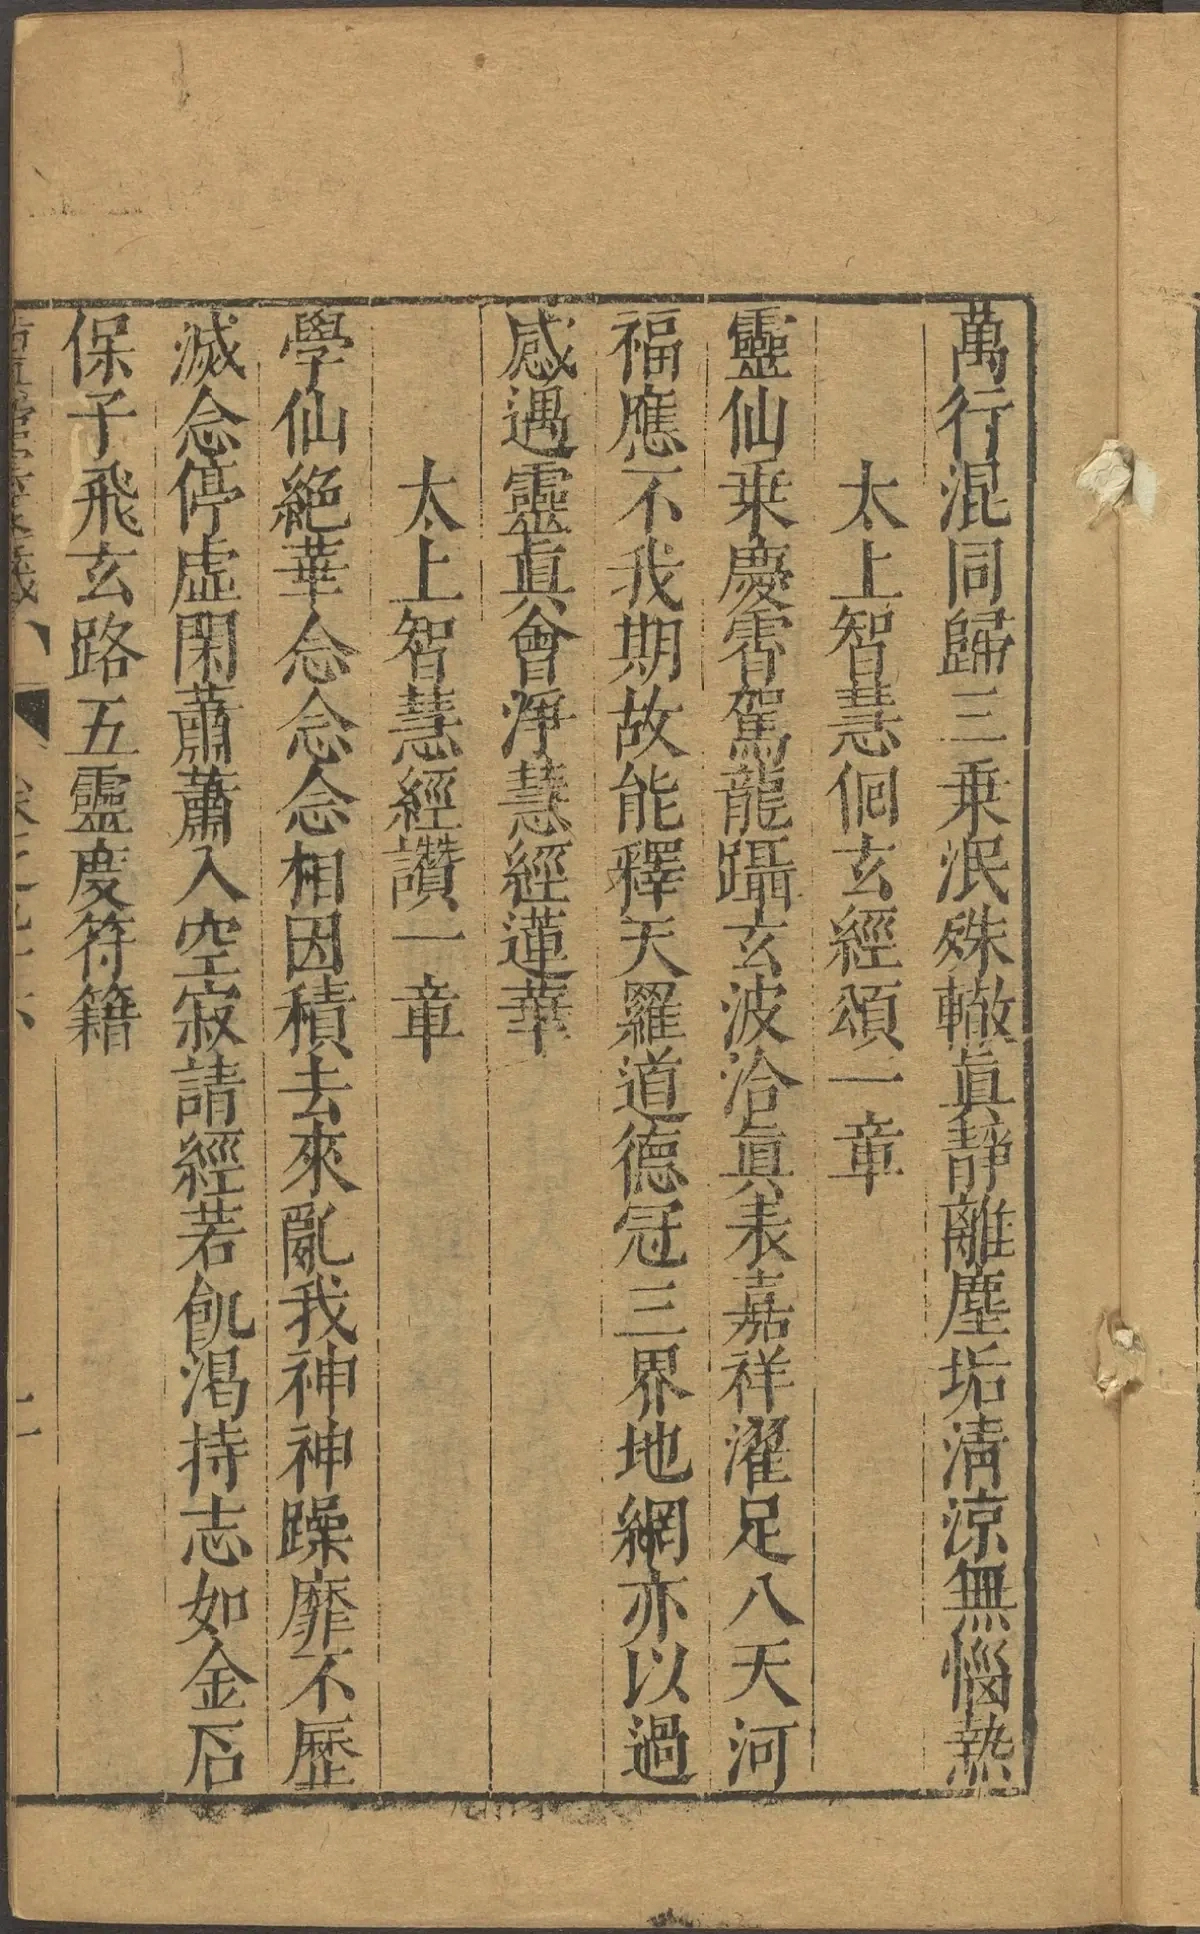 萬行混同歸三乗泯殊轍眞靜離塵垢清涼無惱熱
太上智慧徊玄經頌一章
靈仙乗慶霄駕龍躡玄波洽眞表嘉祥濯足八天河
福應不我期故能釋天羅道德冠三界地網亦以過
感遇靈眞會淨慧經蓮華
太上智慧經讚一章
學仙絶華念念念相因積去來亂我神神躁靡不歷
滅念停虛閑蕭蕭入空寂請經若飢渇持志如金石
保子飛玄路五靈度符籍